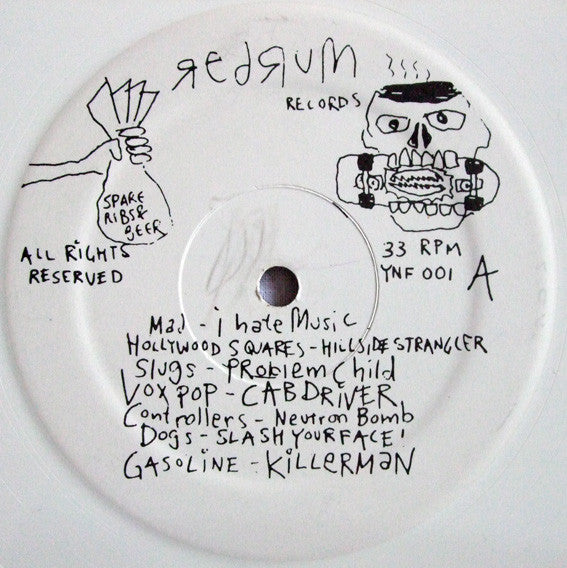 redrum
RECORDS
SPARE
RIBS &
BEER
ALL RIGHTS
RESERVED
33 RPM
YNF 001 A
Mad - i hate Music
HOLLYWOOD SQUARES - HILLSIDE STRANGLER
Slugs - PRoblem Child
VOX POP - CAB DRIVER
Controllers - Neutron Bomb
Dogs - SLASH YOUR FACE!
GASOLINE - KiLLERMAN